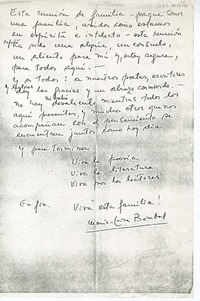 Esta reunión de familia - porque somos
una familia, unidos como estamos
en espíritu e intelecto - esta reunión
ha sido una alegría, un consuelo,
un aliento para mí y, estoy segura,
para todos aquí.
Y a todos: a nuestros poetas, escritores
y lectores doy las gracias y un abrazo comovido. -
no hay desaliento mientras todos los
aquí presentes, y muchos otros que nos
acompañan con el pensamiento se
encuentren juntos como hoy día
Y para terminar
Viva la poesía
Viva la literatura
Viva por los lectores
En fin, Viva esta familia!
María-Luisa Bombal